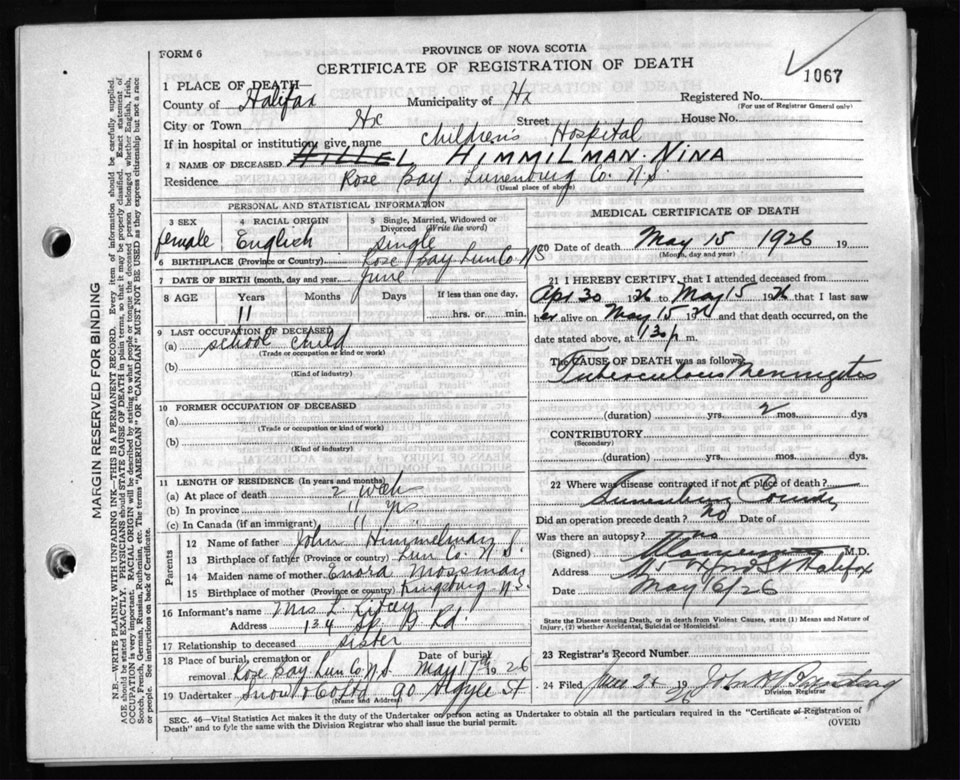 FORM 6
PROVINCE OF NOVA SCOTIA
CERTIFICATE OF REGISTRATION OF DEATH
1067
1 PLACE OF DEATH
County of Halifax Municipality of Hx Registered No.
(For use of Registrar General only)
City or Town Hx Street House No.
If in hospital or institution give name Children's Hospital
2 NAME OF DECEASED HIMMILMAN. NINA
Residence Rose Bay. Lunenburg Co. N.S.
(Usual place of abode)
PERSONAL AND STATISTICAL INFORMATION
3 SEX 4 RACIAL ORIGIN 5 Single, Married, Widowed or Divorced (Write the word)
female English single
6 BIRTHPLACE (Province or Country) Rose Bay Lun Co. N S
7 DATE OF BIRTH (month, day and year) June
8 AGE Years Months Days If less than one day,
11 hrs. or min.
9 LAST OCCUPATION OF DECEASED
(a) school child
(Trade or occupation or kind or work)
(b)
(Kind of industry)
10 FORMER OCCUPATION OF DECEASED
(a)
(Trade or occupation or kind of work)
(b)
(Kind of industry)
11 LENGTH OF RESIDENCE (In years and months)
(a) At place of death 2 weeks
(b) In province 11 yrs
(c) In Canada (if an immigrant) 11
Parents
12 Name of father John Himmelman
13 Birthplace of father (Province or country) Lun Co. N.S.
14 Maiden name of mother Mossman
15 Birthplace of mother (Province or country) Kingsburg N S
16 Informant's name Mrs L.
Address 134
17 Relationship to deceased sister
18 Place of burial, cremation or removal Rose Bay Lun Co N S Date of burial May 17th 19 26
19 Undertaker Snow & Co Ltd 90 Argyle St
(Name and Address)
MEDICAL CERTIFICATE OF DEATH
20 Date of death May 15 1926 19
(Month, day and year)
21 I HEREBY CERTIFY, that I attended deceased from
Apr 30 1926 to May 15 1926 that I last saw
her alive on May 15 1926 and that death occurred, on
date stated above, at 130 p m.
The CAUSE OF DEATH was as follows:
Tuberculous Meningitis
(duration) yrs. 2 mos. dys
CONTRIBUTORY
(Secondary)
(duration) yrs. mos. dys.
22 Where was disease contracted if not at place of death?
Lunenburg County
Did an operation precede death? no Date of
Was there an autopsy? no
(Signed) M.D.
Address Halifax
Date May 16/26
State the Disease causing Death, or in death from Violent Causes, state (1) Means and Nature of Injury, (2) whether Accidental, Suicidal or Homicidal.
23 Registrar's Record Number
24 Filed 19 26 John
Division Registrar
SEC. 46—Vital Statistics Act makes it the duty of the Undertaker or person acting as Undertaker to obtain all the particulars required in the "Certificate of Registration of
Death" and to fyle the same with the Division Registrar who shall issue the burial permit.
(OVER)
MARGIN RESERVED FOR BINDING
N.B.—WRITE PLAINLY WITH UNFADING INK—THIS IS A PERMANENT RECORD. Every item of information should be carefully supplied.
AGE should be stated EXACTLY. PHYSICIANS should STATE CAUSE OF DEATH in plain terms, so that it may be properly classified. Exact statement of
OCCUPATION is very important. RACIAL ORIGIN will be described by stating to what people or tongue the deceased person belonged whether English, Irish,
Scotch, French, German, Russian, Ruthenian, etc. The terms "AMERICAN" OR "CANADIAN" MUST NOT BE USED as they express citizenship but not a race
or people. See instructions on back of Certificate.